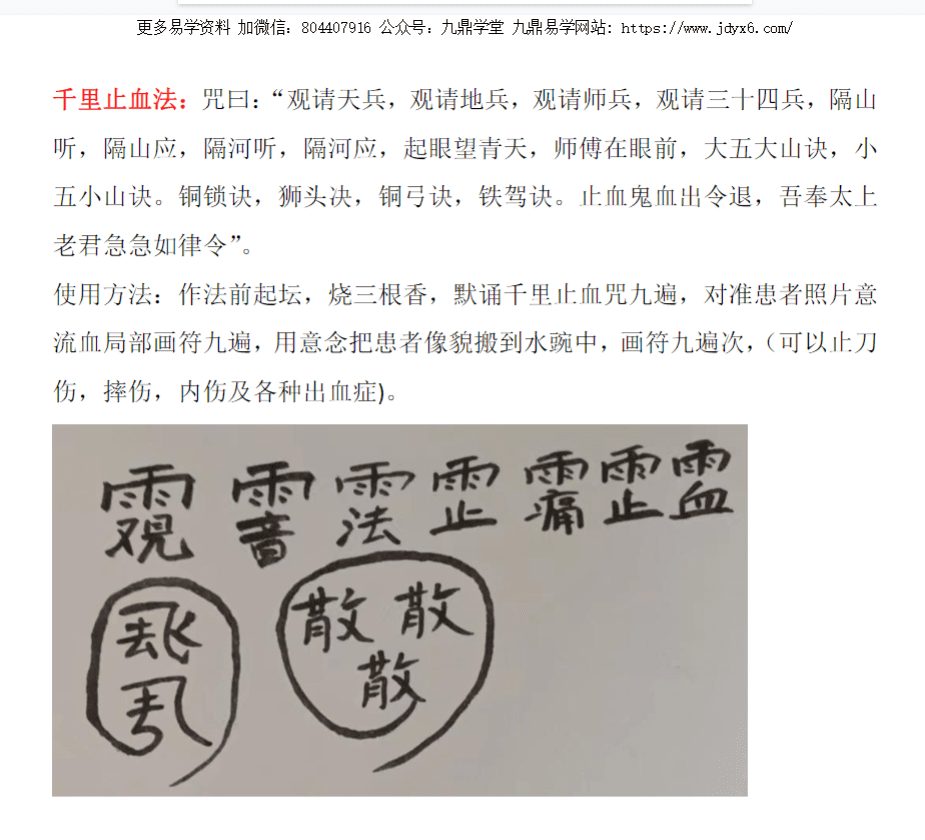 更多易学资料 加微信：804407916 公众号：九鼎学堂 九鼎易学网站: https://www.jdyx6.com/
千里止血法：咒曰：“观请天兵，观请地兵，观请师兵，观请三十四兵，隔山
听，隔山应，隔河听，隔河应，起眼望青天，师傅在眼前，大五大山诀，小
五小山诀。铜锁诀，狮头决，铜弓诀，铁驾诀。止血鬼血出令退，吾奉太上
老君急急如律令”。
使用方法：作法前起坛，烧三根香，默诵千里止血咒九遍，对准患者照片意
流血局部画符九遍，用意念把患者像貌搬到水豌中，画符九遍次，（可以止刀
伤，摔伤，内伤及各种出血症)。
法
散 散
散